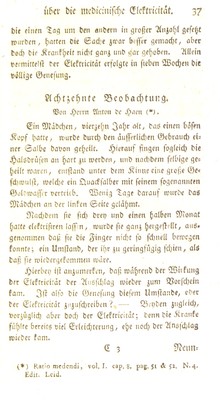 über die medicinische Elektricität. 37
die einen Tag um den andern in großer Anzahl gesetzt
wurden, hatten die Sache zwar besser gemacht, aber
doch die Krankheit nicht ganz und gar gehoben. Allein
vermittelst der Elektricität erfolgte in sieben Wochen die
völlige Genesung.
Achtzehnte Beobachtung.
Von Herrn Anton de Haen (*).
Ein Mädchen, vierzehn Jahr alt, das einen bösen
Kopf hatte, wurde durch den äußerlichen Gebrauch ei-
ner Salbe davon geheilt. Hierauf fingen sogleich die
Halsdrüsen an hart zu werden, und nachdem selbige ge-
heilt waren, entstand unter dem Kinne eine große Ge-
schwulst, welche ein Quacksalber mit seinem sogenannten
Goldwasser vertrieb. Wenig Tage darauf wurde das
Mädchen an der linken Seite gelähmt.
Nachdem sie sich drey und einen halben Monat
hatte elektrisiren lassen, wurde sie ganz hergestellt, aus-
genommen daß sie die Finger nicht so schnell bewegen
konnte; ein Umstand, der ihr zu geringfügig schien, als
daß sie wiedergekommen wäre.
Hierbey ist anzumerken, daß während der Wirkung
der Elektricität der Ausschlag wieder zum Vorschein
kam. Ist also die Genesung diesem Umstande, oder
der Elektricität zuzuschreiben? — Beyden zugleich,
vorzüglich aber doch der Elektricität; denn die Kranke
fühlte bereits viel Erleichterung, ehe noch der Ausschlag
wieder kam.
C 3 Neun-
(*) Ratio medendi, vol. I. cap. 1. pag. 51 & 52. N. 4.
Edit. Leid.